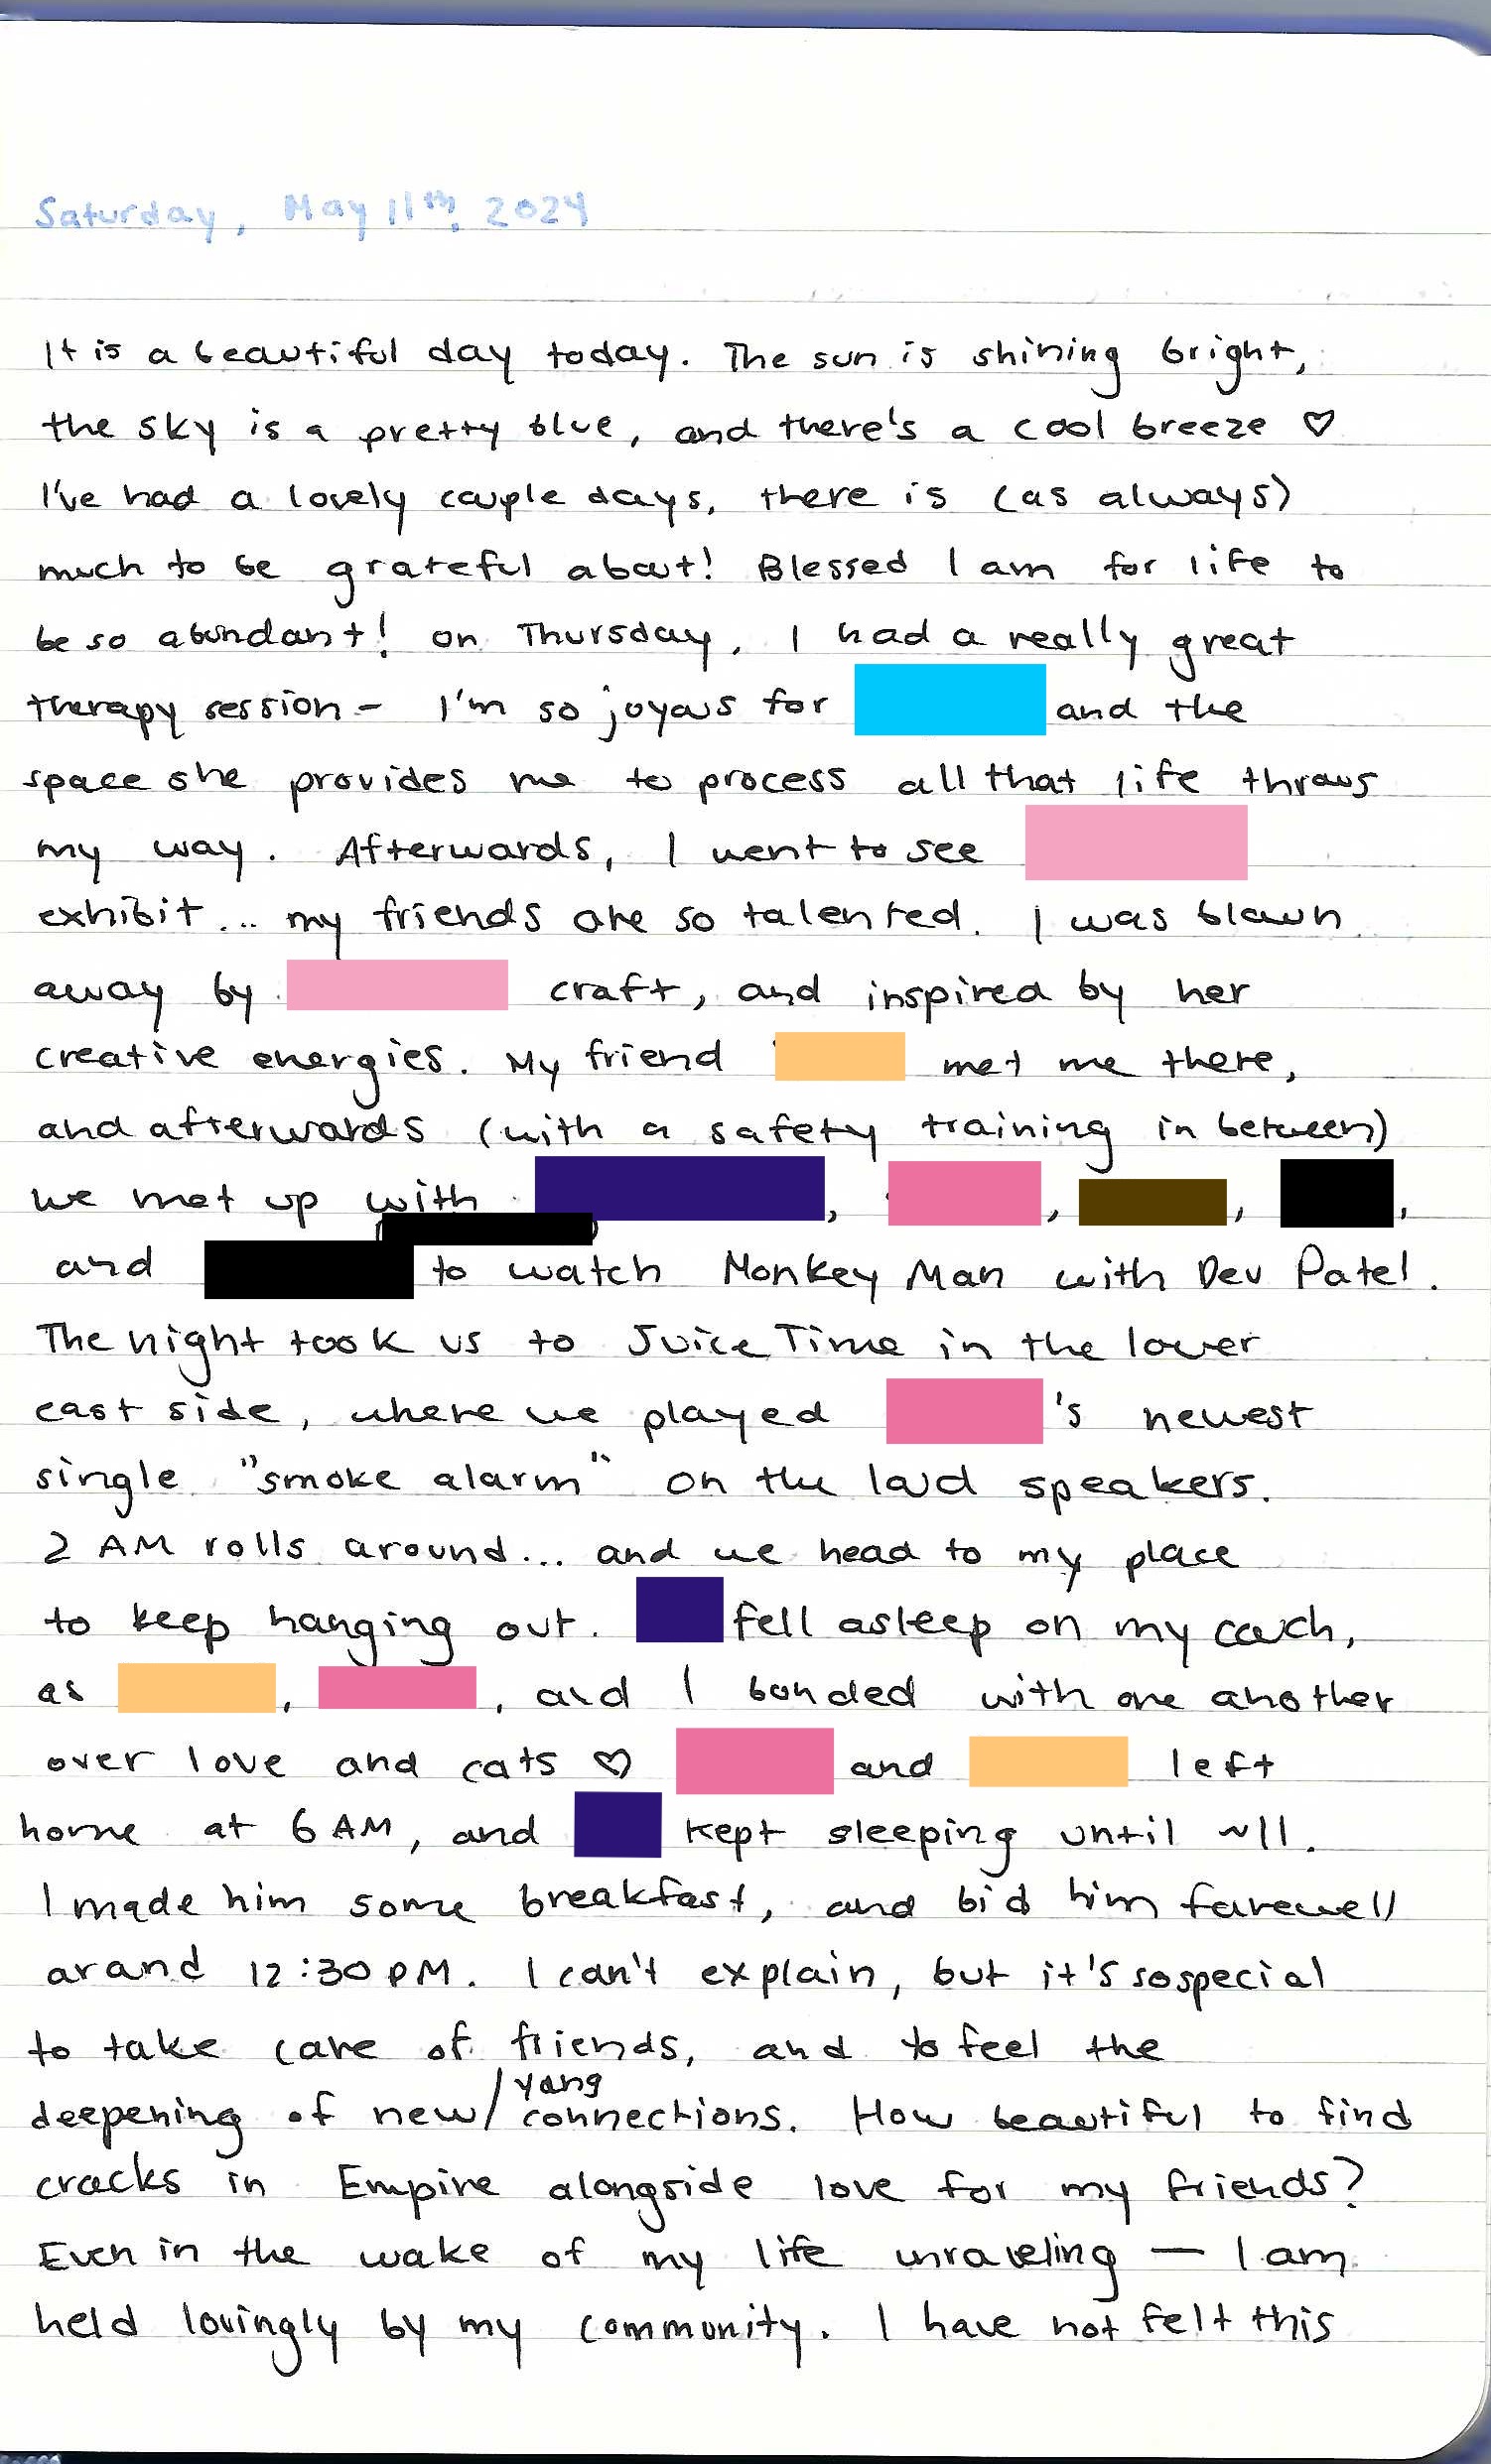 Saturday, May 11th, 2024
It is a beautiful day today. The sun is shining bright,
the sky is a pretty blue, and there's a cool breeze ♡
I've had a lovely couple days, there is (as always)
much to be grateful about! Blessed I am for life to
be so abundant! On Thursday, I had a really great
therapy session - I'm so joyous for and the
space she provides me to process all that life throws
my way. Afterwards, I went to see
exhibit... my friends are so talented. I was blown
away by craft, and inspired by her
creative energies. My friend met me there,
and afterwards (with a safety training in between)
we met up with , , , ,
and to watch Monkey Man with Dev Patel.
The night took us to Juice Time in the lower
east side, where we played 's newest
single "smoke alarm" on the loud speakers.
2 AM rolls around... and we head to my place
to keep hanging out. fell asleep on my couch,
as , , and I bonded with one another
over love and cats ♡ and left
home at 6 AM, and kept sleeping until ~11.
I made him some breakfast, and bid him farewell
around 12:30 PM. I can't explain, but it's so special
to take care of friends, and to feel the
deepening of new/young connections. How beautiful to find
cracks in Empire alongside love for my friends?
Even in the wake of my life unraveling — I am
held lovingly by my community. I have not felt this